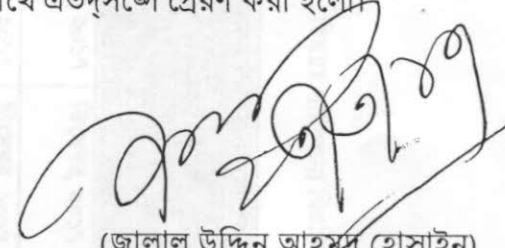 এতদ্‌সঙ্গে প্রেরণ করা হলো।
(জালাল উদ্দিন আহমদ হোসাইন)